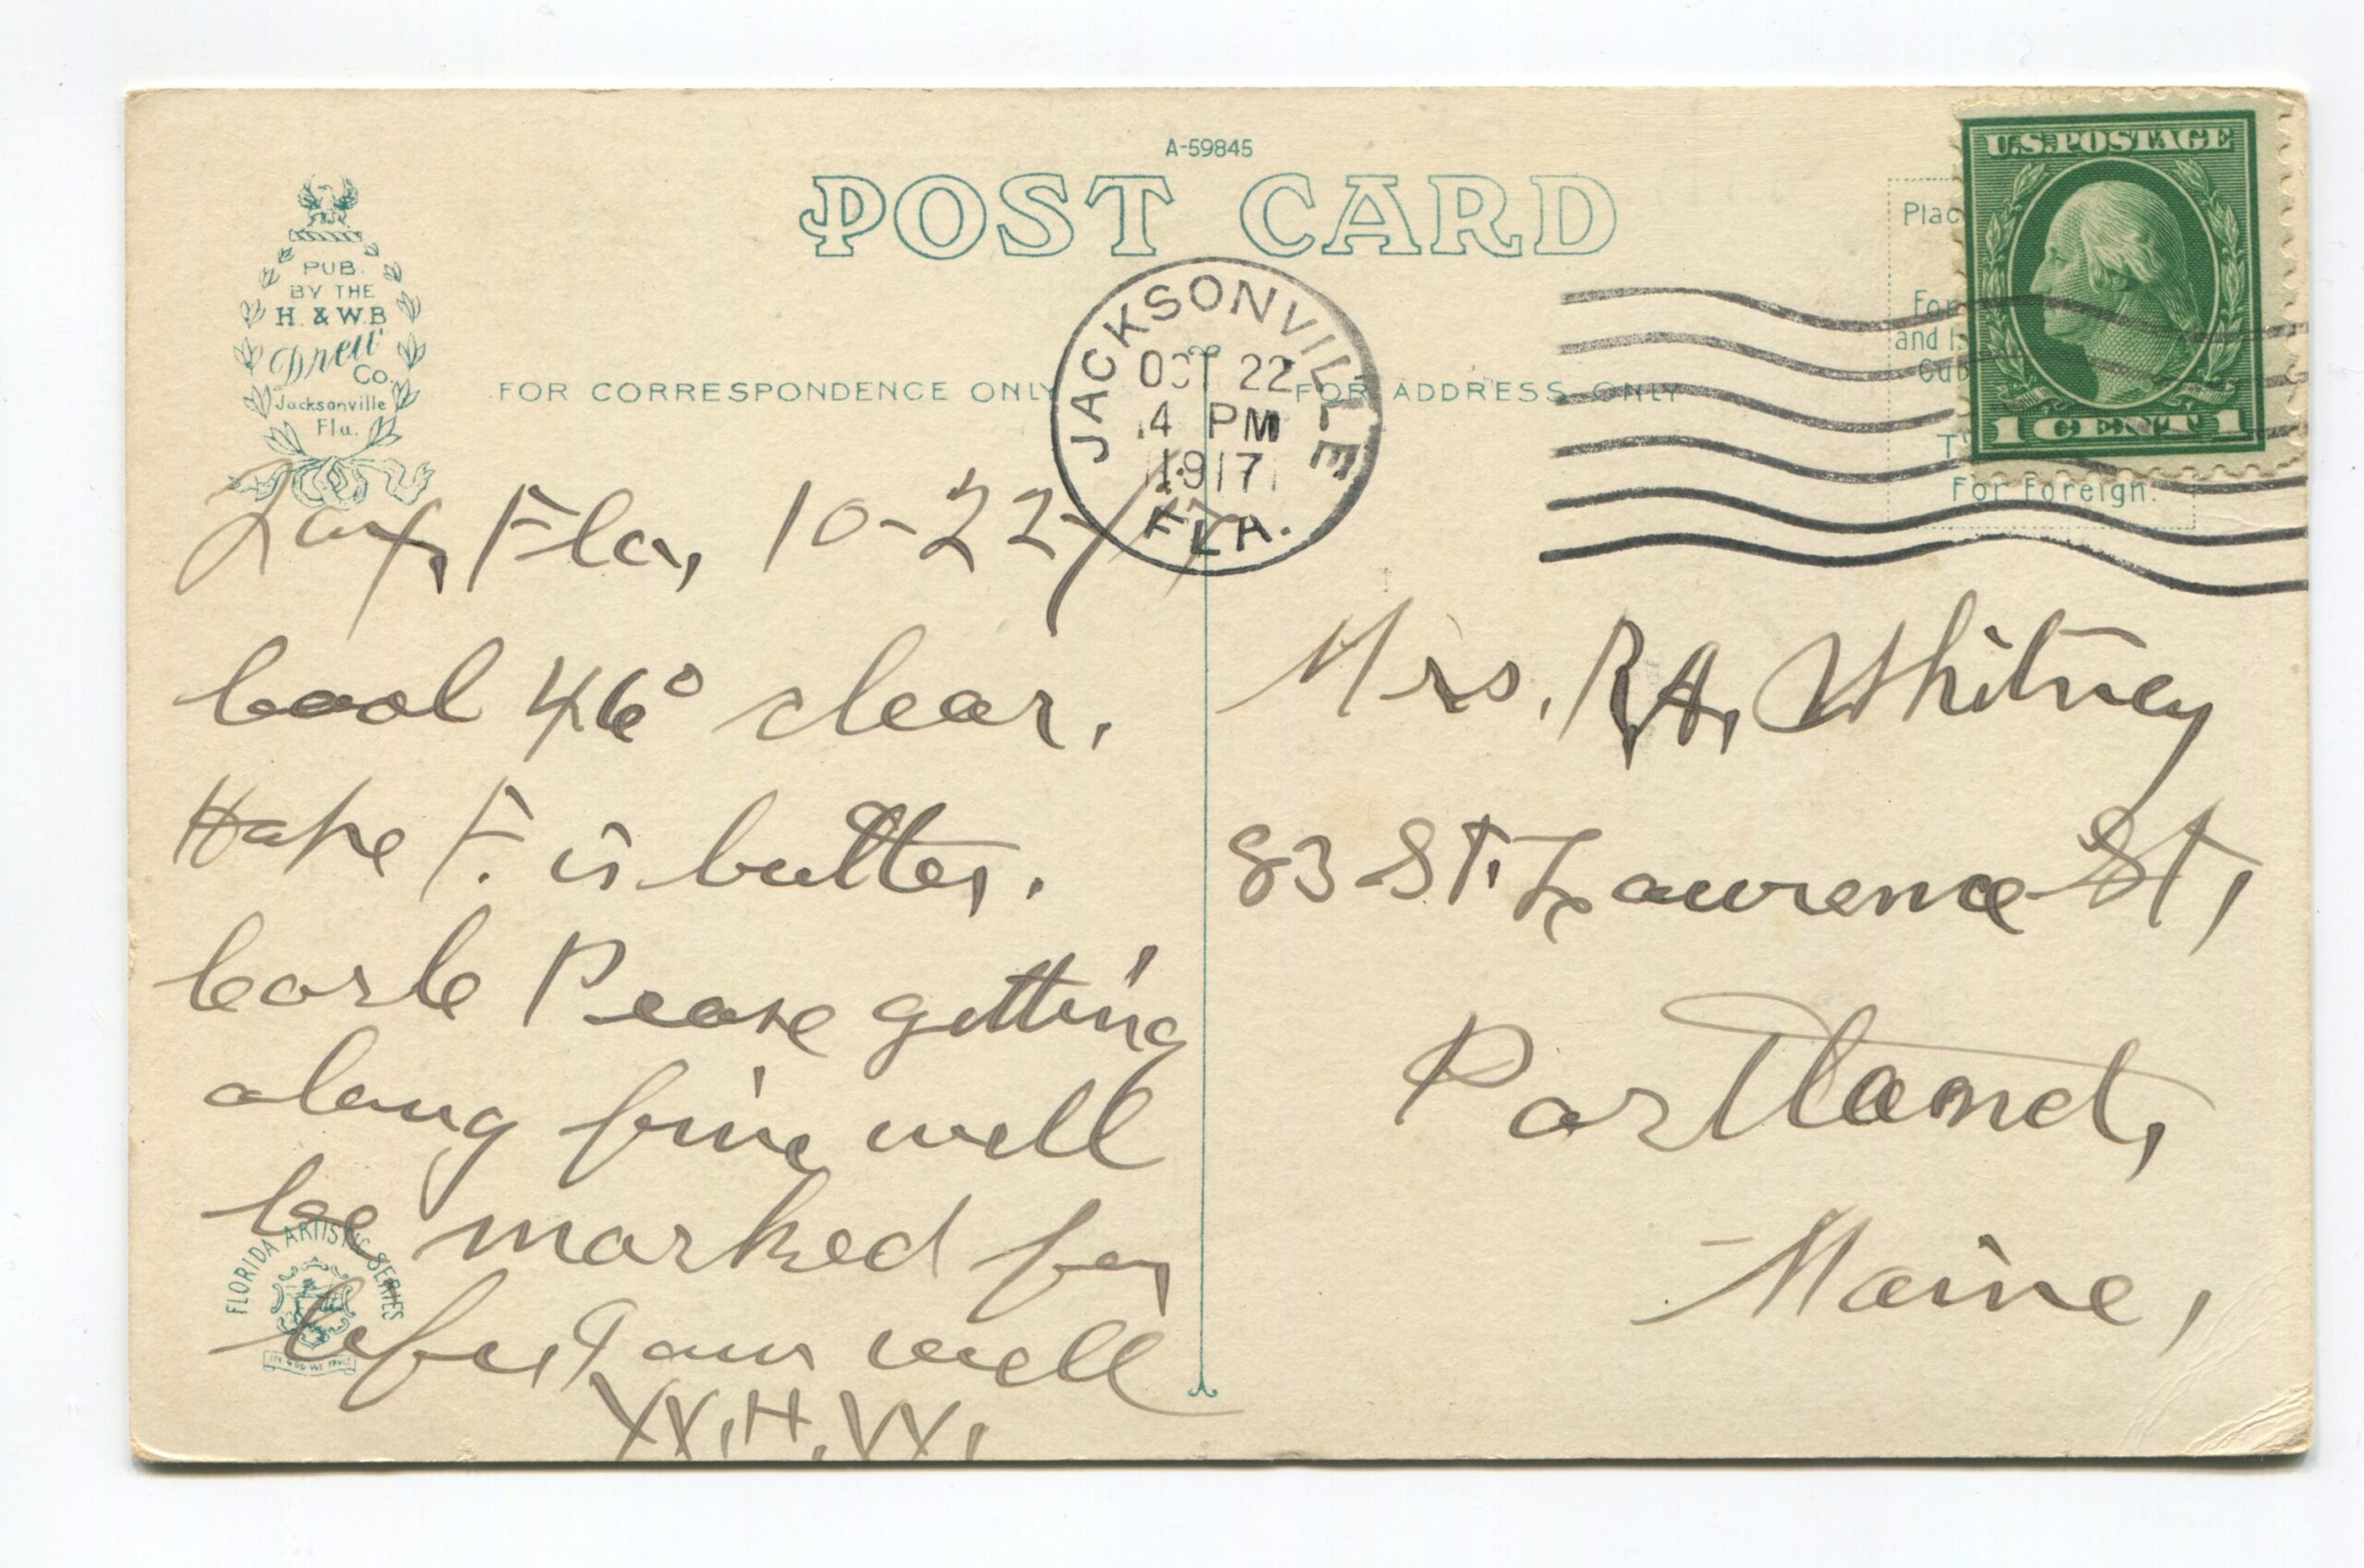 A-59845
POST CARD
PUB.
BY THE
H. & W.B.
Drew
Co.
Jacksonville
Fla.
FOR CORRESPONDENCE ONLY
FOR ADDRESS ONLY
JACKSONVILLE
OCT 22
4 PM
1917
FLA.
U.S. POSTAGE
1 CENT 1
Plac
For
and I
Cub
For Foreign.
Jax, Fla, 10-22/17
Cool 46° clear.
Hope F. is better.
Carle Pease getting
along fine will
be marked for
life, I am well
W.H.W.
Mrs. R.H. Whitney
83 St. Lawrence St,
Portland,
Maine,
FLORIDA ARTISTIC SERIES
IN GOD WE TRUST